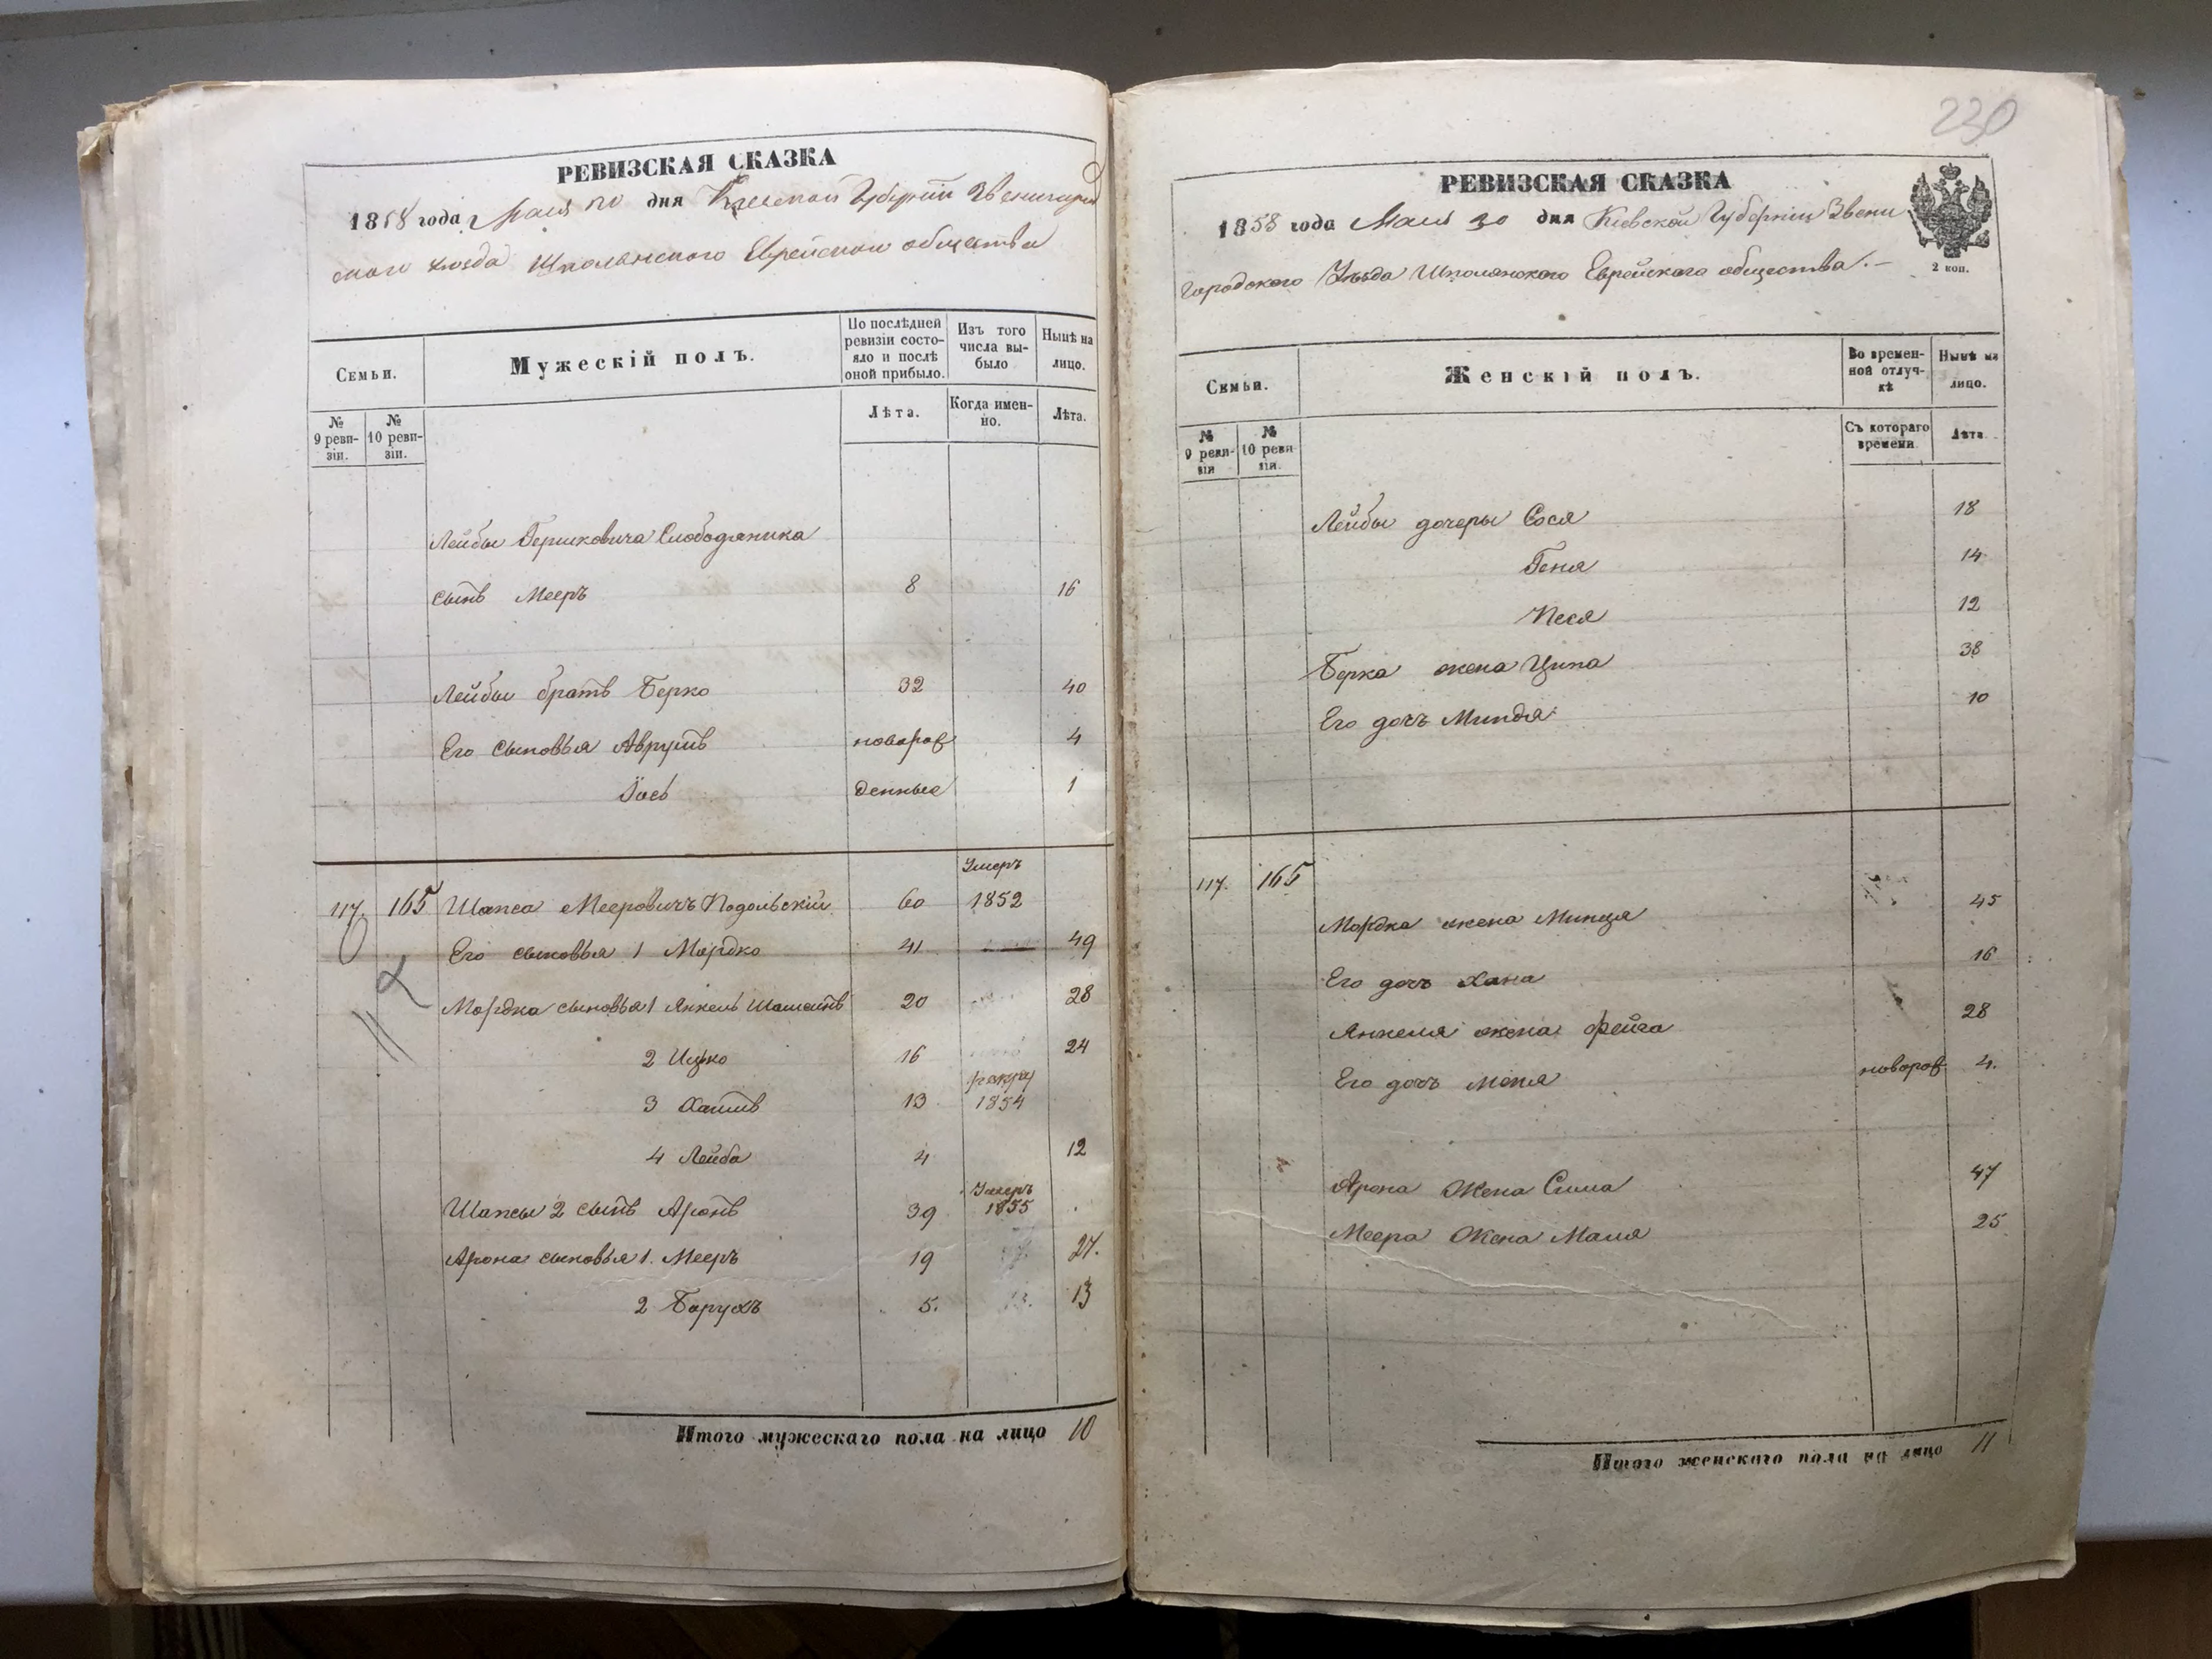 РЕВИЗСКАЯ СКАЗКА
1858 года Мая 20 дня Киевской Губерніи Звенигород
скаго уѣзда Шполянского Еврейскаго общества
Семьи.
Мужескій полъ.
По послѣдней ревизіи состояло и послѣ оной прибыло.
Изъ того числа выбыло
Нынѣ на лицо.
№ 9 ревизіи.
№ 10 ревизіи.
Лѣта.
Когда именно.
Лѣта.
Лейбы Гершковича Слободяника
сынъ Мееръ 8 16
Лейбы братъ Берко 32 40
Его сыновья Аврумъ новорож 4
Іось денные 1
Умеръ
117. 165 Шапса Мееровичъ Подольскій 60 1852
Его сыновья 1 Мордко 41 49
Мордка сыновья 1 Янкель 20 28
2 Ицко 16 24
3 Хаимъ 13 1854
4 Лейба 4 12
Умеръ
Шапсы 2 сынъ Аронъ 39 1855
Арона сыновья 1. Мееръ 19 27.
2 Борухъ 5. 13
Итого мужескаго пола на лицо 10
230
РЕВИЗСКАЯ СКАЗКА
1858 года Мая 20 дня Кіевской Губерніи Звени
городского Уѣзда Шполянского Еврейскаго общества.-
2 коп.
Семьи.
Женскій полъ.
Во временной отлучкѣ
Нынѣ на лицо.
№ 9 ревизіи
№ 10 ревизіи.
Съ котораго времени
Лѣта.
Лейбы дочеры Сося 18
Геня 14
Песя 12
Берка жена Ципа 38
Его дочъ Миндя 10
117. 165
Мордка жена Минця 45
Его дочъ Хана 16
Янкеля жена Фейга 28
Его дочъ новорож 4.
Арона Жена Сима 47
Меера Жена Маля 25
Итого женскаго пола на лицо 11